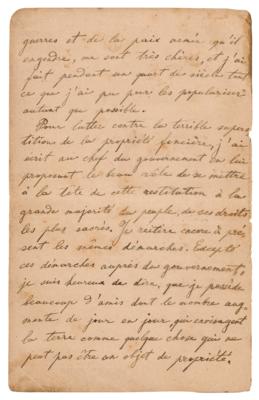 guerres et de la paix armée qu'il
engendre, me sont très chères, et j'ai
fait pendant un quart de siècle tout
ce que j'ai pu pour les populariser
autant que possible.
Pour lutter contre la terrible supers-
tition de la propriété foncière, j'ai
écrit au chef du gouvernement en lui
proposant le beau rôle de se mettre
à la tête de cette restitution à la
grande majorité du peuple, de ses droits
les plus sacrés. Je réitère encore à pré-
sent les mêmes démarches. Excepté
ces démarches auprès du gouvernement,
je suis heureux de dire, que je possède
beaucoup d'amis dont le nombre aug-
mente de jour en jour qui envisagent
la terre comme quelque chose qui ne
peut pas être un objet de propriété.